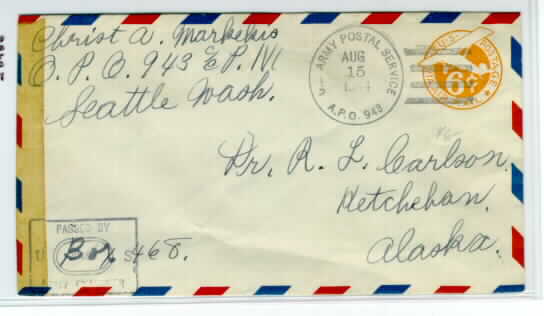 Christ A. Markekis
A. P. O. 943 % P. M
Seattle Wash.
U.S. ARMY POSTAL SERVICE
AUG
15
A.P.O. 943
U.S. POSTAGE
6¢
Dr. R. L. Carlson.
Ketchekan.
Alaska.
PASSED BY
Box 468.